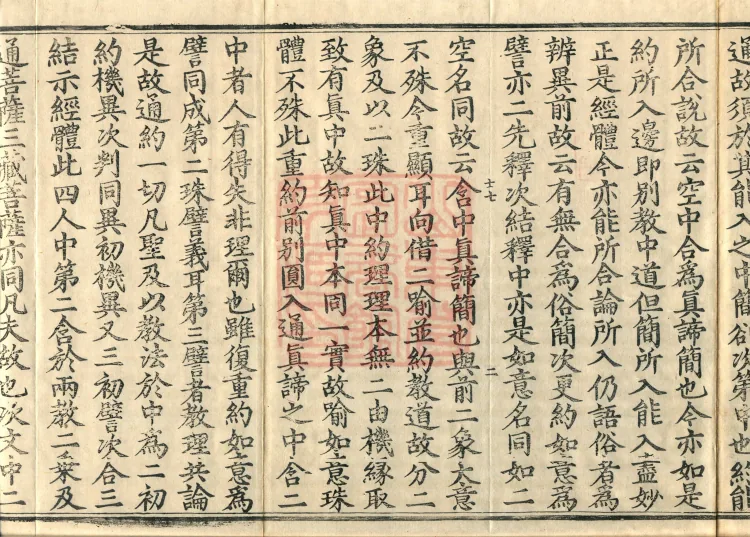 通故須於其能入之中簡卻次第中也終能
所合說故云空中合為真諦簡也今亦如是
約所入邊即別教中道但簡所入能入盡妙
正是經體今亦能所合論所入仍語俗者為
辨異前故云有無合為俗簡次更約如意為
譬亦二先釋次結釋中亦是如意名同如二
十七
二
空名同故云含中真諦簡也與前二象大意
不殊今重顯耳向借二喻並約教道故分二
象及以二珠此中約理理本無二由機緣取
致有真中故知真中本同一實故喻如意珠
體不殊此重約前別圓入通真諦之中含二
中者人有得失非理爾也雖復重約如意為
譬同成第二珠譬義耳第三譬者教理共論
是故通約一切凡聖及以教法於中為二初
約機異次判同異初機異又三初譬次合三
結示經體此四人中第二含於兩教二乘及
通菩薩三藏菩薩亦同凡夫故也次文中二